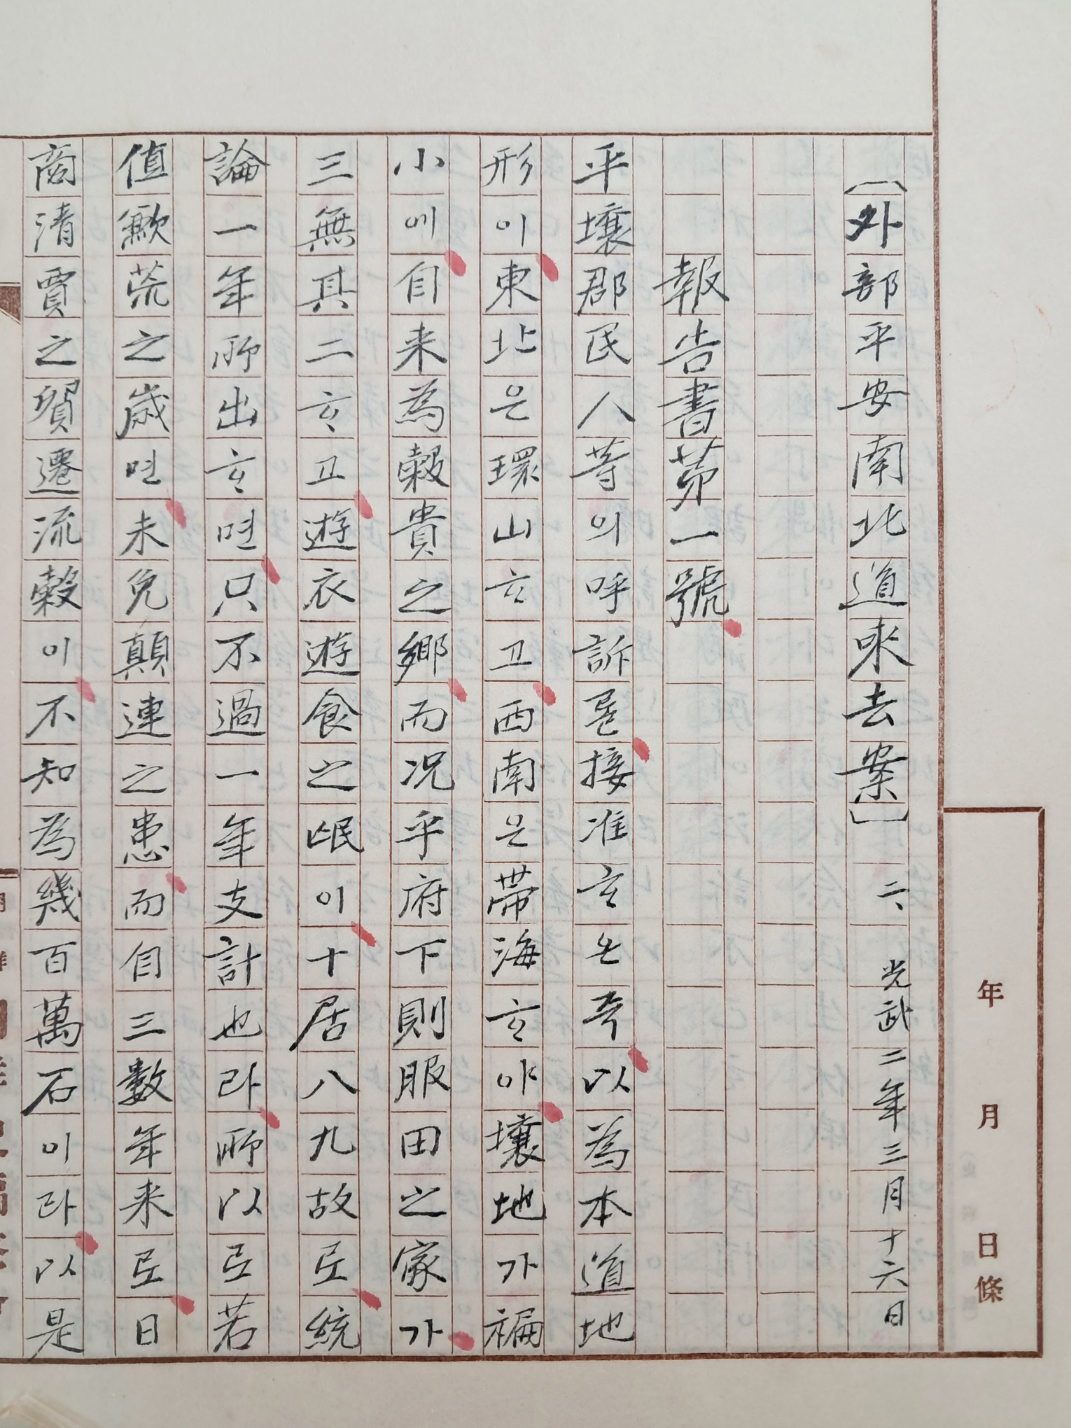 〔外部平安南北道來去案〕 二、 光武二年三月十六日
報告書苐一號
平壤郡民人等의呼訴를接准훈즉以為本道地
形이東北은環山亽고西南은帶海亽야壤地가褊
小에自来為穀貴之鄉而况乎府下則服田之家가
三無其二亽고遊衣遊食之氓이十居八九故로統
論一年所出亽면只不過一年支計也라所以로若
值歉荒之歲면未免顛連之患而自三數年来로日
商清賈之貿遷流穀이不知為幾百萬石이라以是
年 月 日條